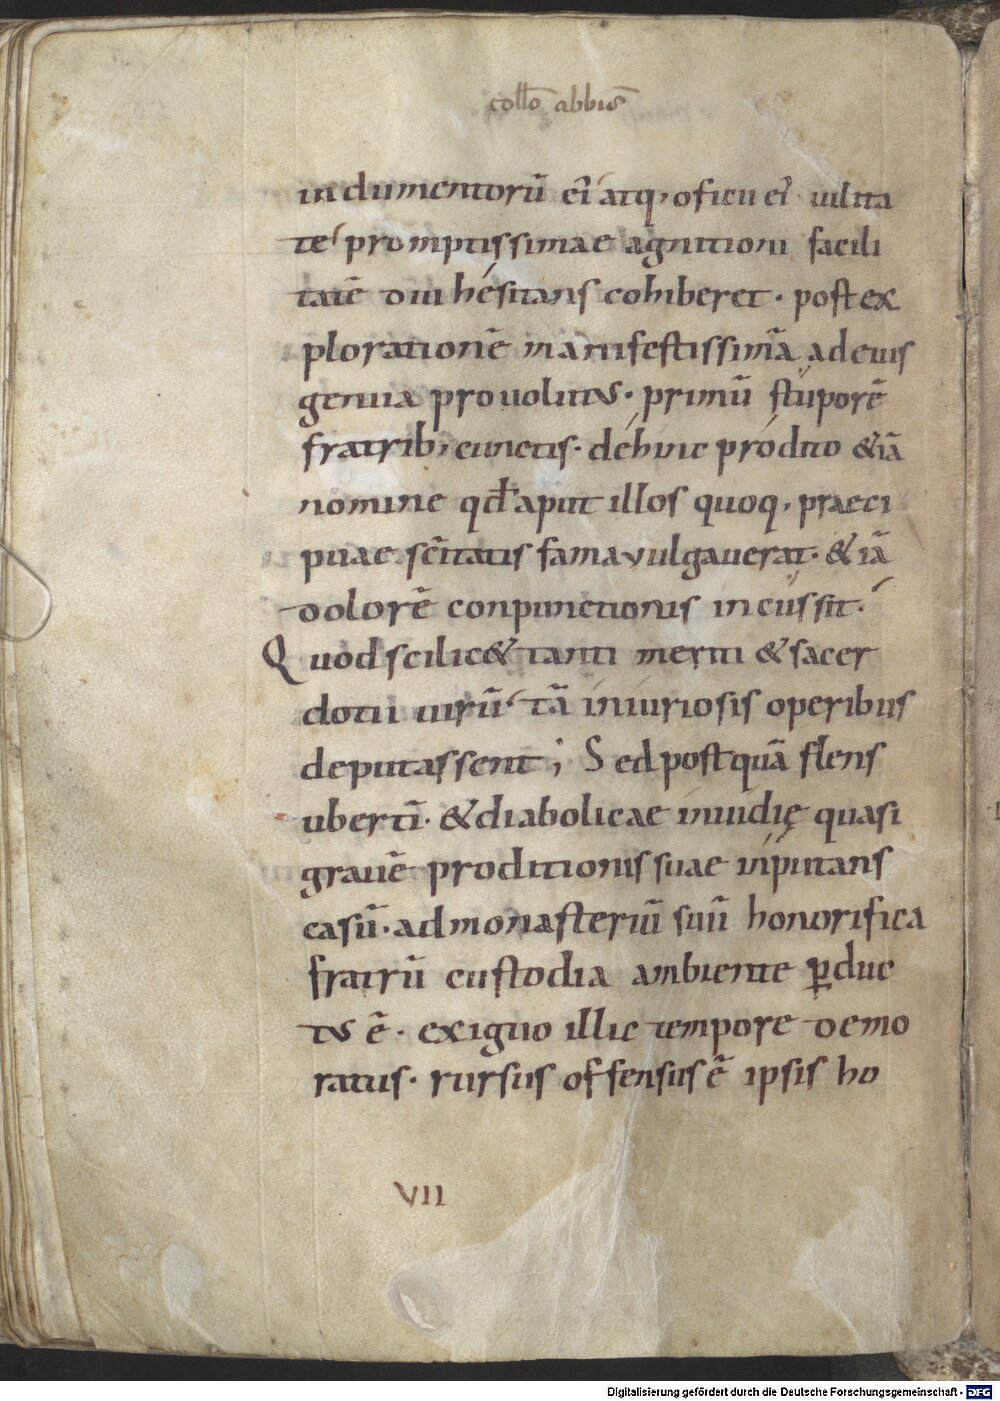 collō abbis̄
indumentorū ei᷒ atq, oficii ei᷒ uilita
te promptissimae agnitioni facili
tatē diu hesitans cohiberet · post ex
plorationē manifestissimā ad eius
genua prouolutus · primū stuporē
fratrib, cunctis · dehinc prodito &iā
nomine qđ aput illos quoq, praeci
puae sc̄itatis fama vulgauerat · & iā
dolorē conpunctionis incussit ·
Quod scilic& tanti meriti & sacer
dotii uirū tā iniuriosis operibus
deputassent; Sed postquā flens
ubertī · & diabolicae inuidię quasi
grauē proditionis suae inputans
casū · ad monasteriū suū honorifica
fratrū custodia ambiente ꝑduc
tus ē · exiguo illic tempore demo
ratus · rursus offensus ē ipsis ho
VII
Digitalisierung gefördert durch die Deutsche Forschungsgemeinschaft - DFG